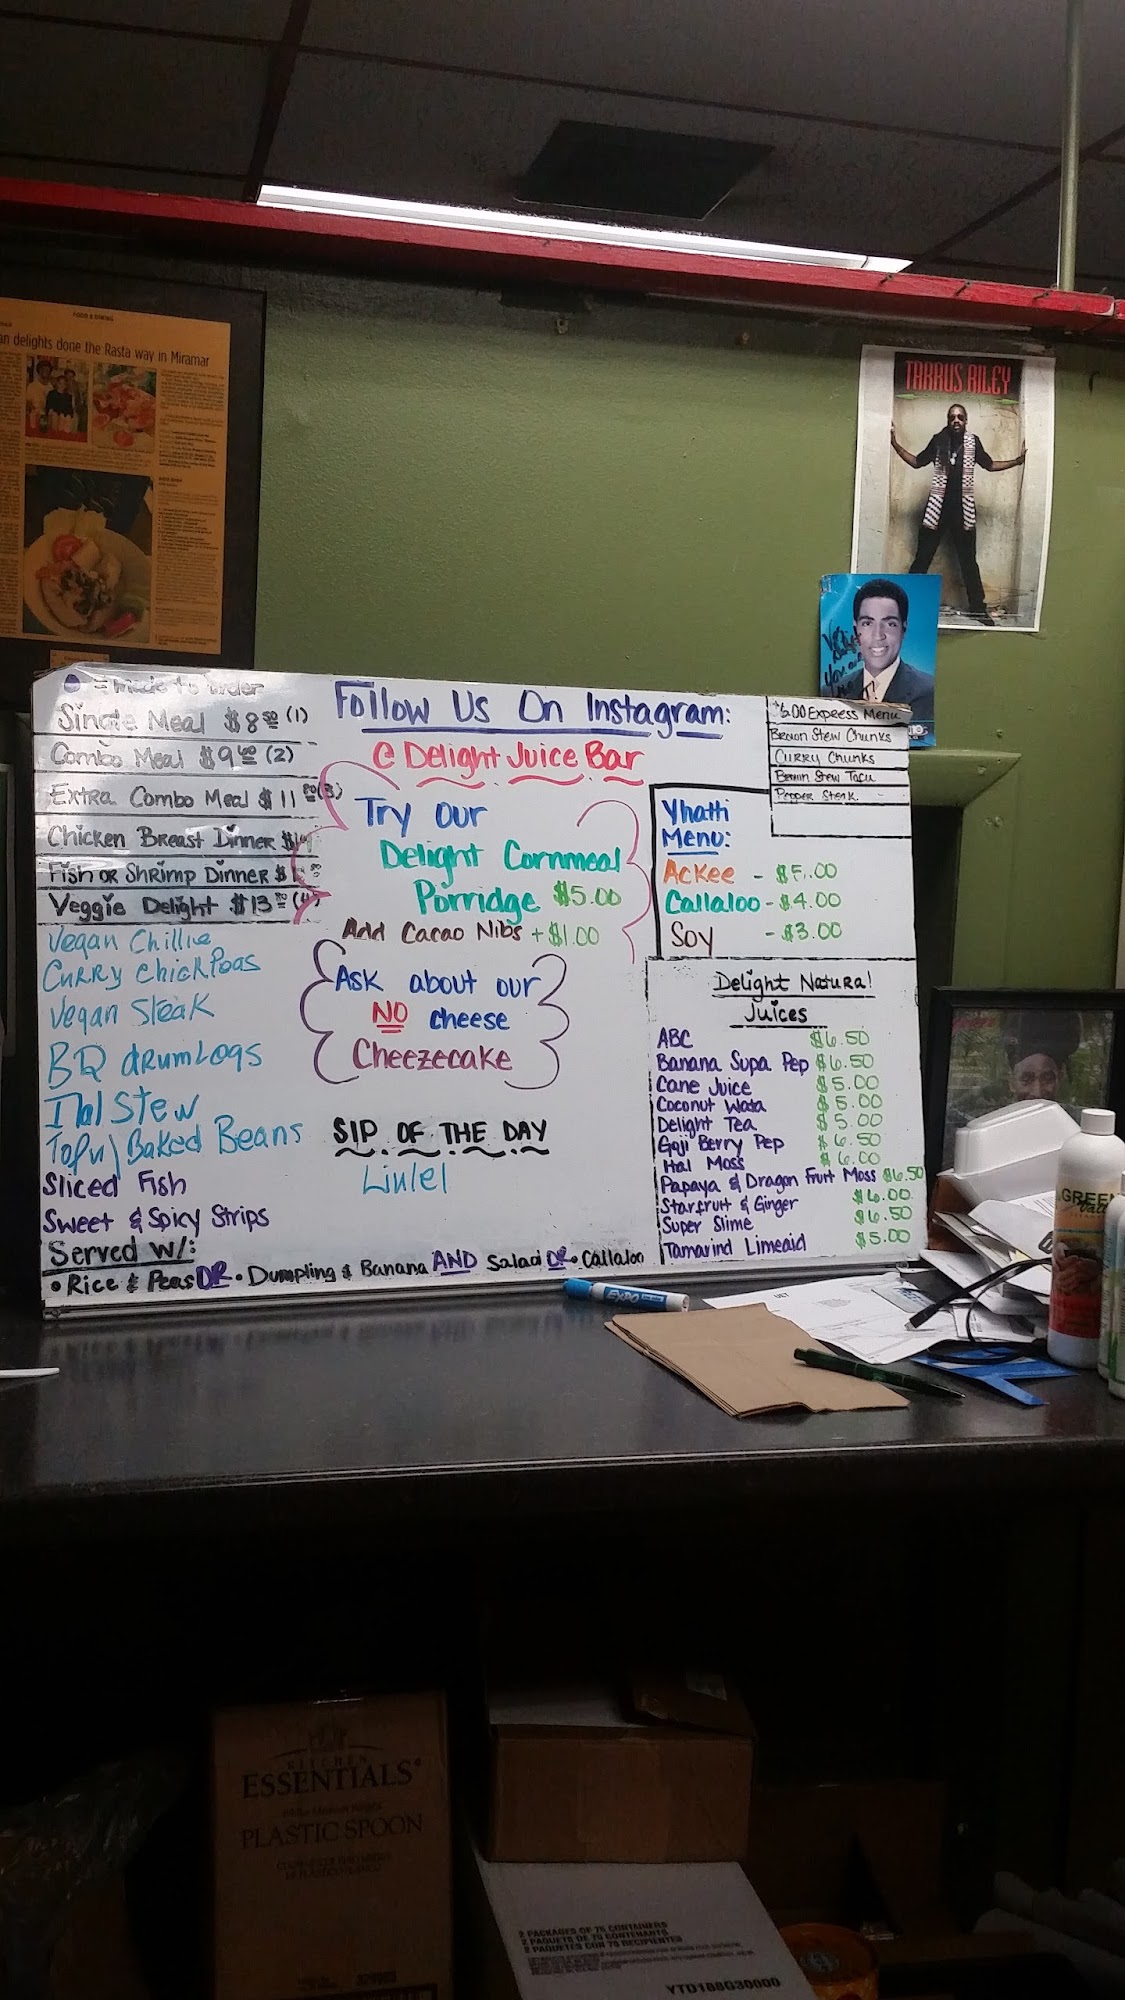 FOOD & DINING
an delights done the Rasta way in Miramar
TARRUS RILEY
= made to order
Single Meal $8.50 (1)
Combo Meal $9.60 (2)
Extra Combo Meal $11
Chicken Breast Dinner
Fish or Shrimp Dinner $
Veggie Delight $13
Vegan Chillie
Curry ChickPeas
Vegan Steak
BQ drumLogs
Ital Stew
Tofu/Baked Beans
Sliced Fish
Sweet & Spicy Strips
Served w/:
• Rice & Peas OR • Dumpling & Banana AND Salad OR • Callaloo
Follow Us On Instagram:
@ Delight Juice Bar
Try our
Delight Cornmeal
Porridge $5.00
Add Cacao Nibs + $1.00
Ask about our
NO cheese
Cheezecake
SIP OF THE DAY
$6.00 Express Menu
Brown Stew Chunks
Curry Chunks
Brown Stew Tofu
Pepper Steak
Yhatti
Menu:
Ackee - $5.00
Callaloo - $4.00
Soy - $3.00
Delight Natural
Juices
ABC $6.50
Banana Supa Pep $6.50
Cane Juice $5.00
Coconut Wata $5.00
Delight Tea $5.00
Goji Berry Pep $6.50
Ital Moss $6.00
Papaya & Dragon Fruit Moss $6.50
Starfruit & Ginger $6.00
Super Slime $6.50
Tamarind Limeaid $5.00
EXPO
GREEN
KITCHEN
ESSENTIALS
PLASTIC SPOON
2 PACKAGES OF 75 CONTAINERS
2 PAQUETS DE 75 CONTENANTS
2 PAQUETES CON 75 RECIPIENTES
YTD188G30000